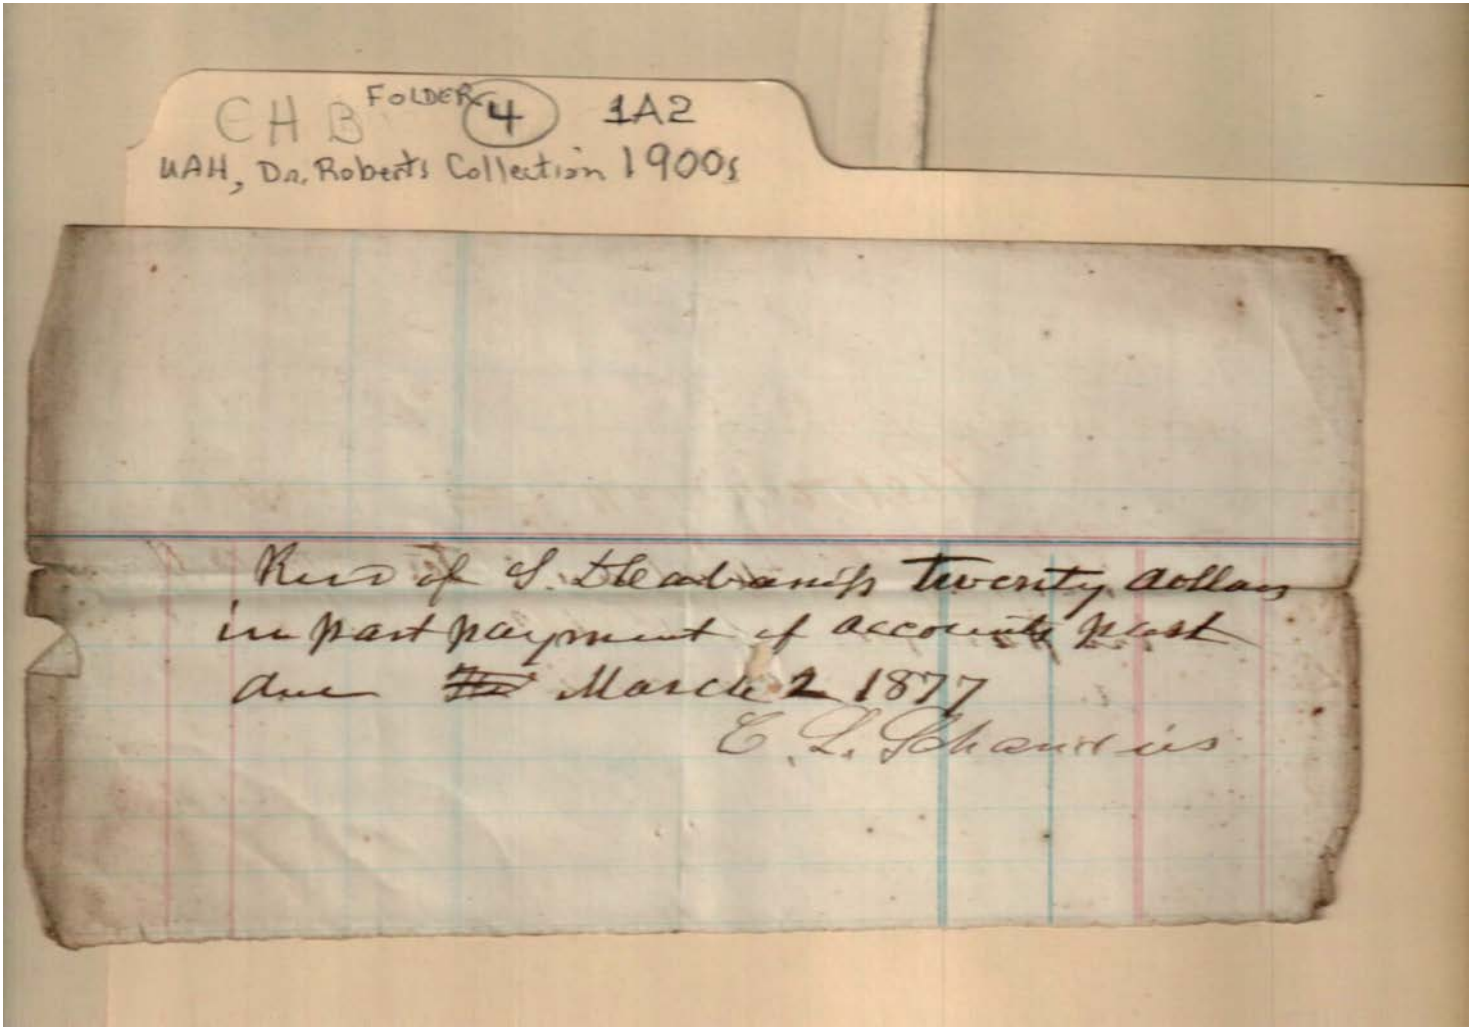 CHB FOLDER 4 1A2
UAH, Dr. Roberts Collection 1900s
Recd of S. D. Cabaniss twenty dollars
in part payment of accounts past
due March 2 1877
C. L.